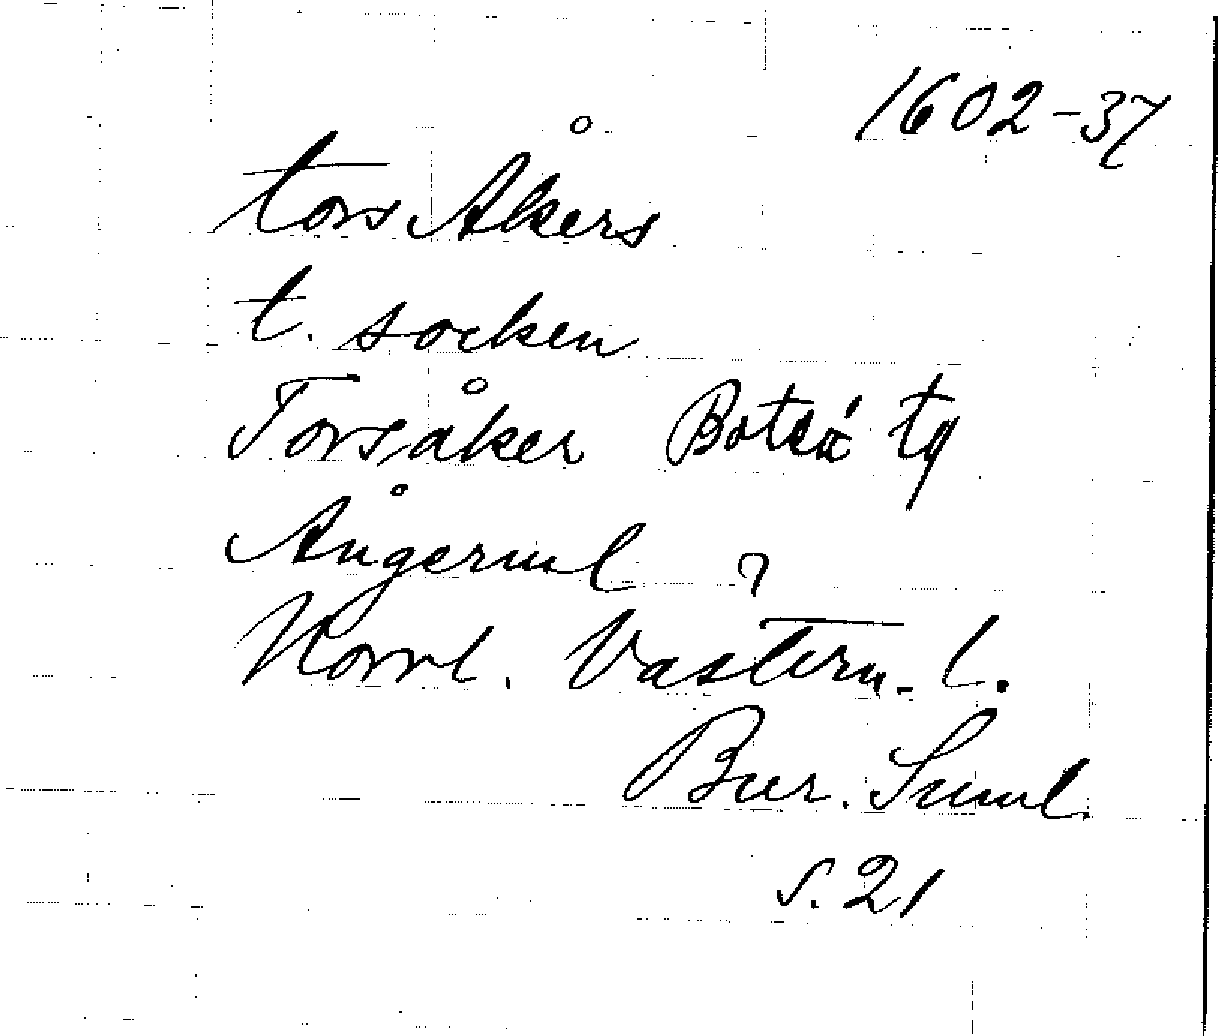 1602-37
tors Åkers
t. socken
Torsåker Boteå tg
Ångerml
Norrl. Västern. l.
Bur. Suml.
s. 21